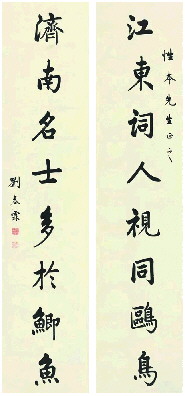 性本先生正之
江東詞人視同鷗鳥
濟南名士多於鯽魚
劉春霖